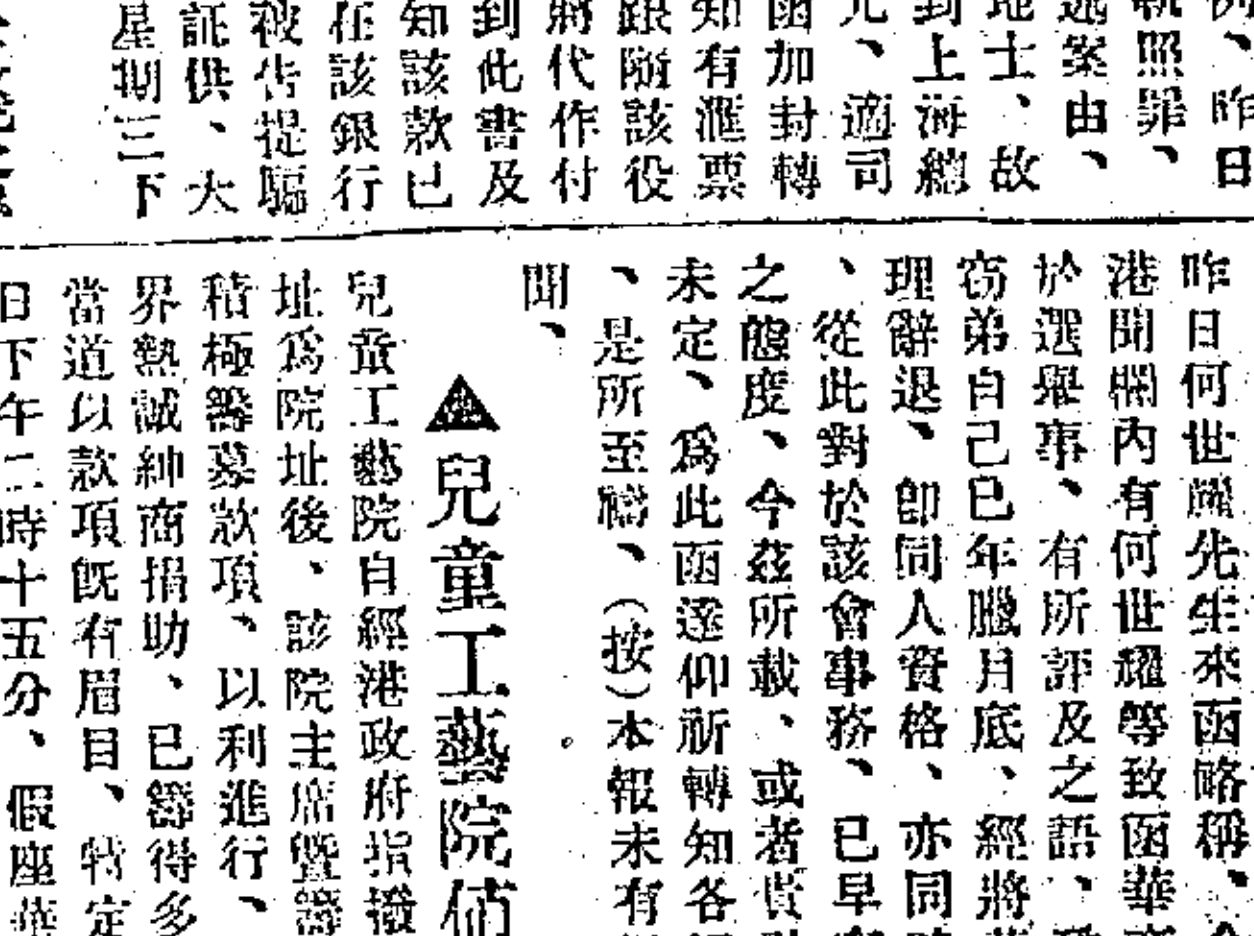 例、昨日
執照罪、
述案由、
地士、故
到上海總
九、適司
函加封轉
知有滙票
跟隨該役
將代作付
到此書及
知該款已
在該銀行
被告提騙
託供、大
星期三下
昨日何世耀先生來函略稱、
港聞欄內有何世耀等致函華
於選舉事、有所評及之語、
窃弟自己巳年臘月底、經將
理辭退、卽同人資格、亦同
、從此對於該會事務、已早
之態度、今茲所載、或者貴
未定、爲此函達仰祈轉知各
、是所至禱、（按）本報未有
聞、
兒童工藝院
兒童工藝院自經港政府指撥
址爲院址後、該院主席曁籌
積極籌募款項、以利進行、
界熱誠紳商捐助、已籌得多
當道以款項旣有眉目、特定
日下午二時十五分、假座華